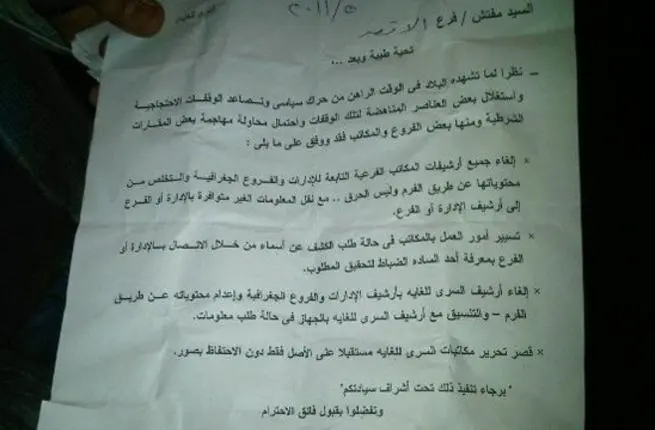 السيد مفتش / فرع الاقصر
٢٠١١/٥
تحية طيبة وبعد ...
ــ نظرا لما تشهده البلاد فى الوقت الراهن من حراك سياسى وتصاعد الوقفات الاحتجاجية
واستغلال بعض العناصر المناهضة لتلك الوقفات واحتمال محاولة مهاجمة بعض المقارات
الشرطية ومنها بعض الفروع والمكاتب فقد ووفق على ما يلى :
× إلغاء جميع أرشيفات المكاتب الفرعية التابعة للإدارات والفروع الجغرافية والتخلص من
محتوياتها عن طريق الفرم وليس الحرق .. مع نقل المعلومات الغير متوافرة بالإدارة أو الفرع
إلى أرشيف الإدارة أو الفرع.
× تسيير أمور العمل بالمكاتب فى حالة طلب الكشف عن أسماء من خلال الاتصال بالإدارة أو
الفرع بمعرفة أحد الساده الضباط لتحقيق المطلوب.
× إلغاء أرشيف السرى للغايه بأرشيف الإدارات والفروع الجغرافية وإعدام محتوياته عن طريق
الفرم – والتنسيق مع أرشيف السرى للغايه بالجهاز فى حالة طلب معلومات.
× قصر تحرير مكاتبات السرى للغايه مستقبلا على الأصل فقط دون الاحتفاظ بصور.
" برجاء تنفيذ ذلك تحت أشراف سيادتكم"
وتفضلوا بقبول فائق الاحترام